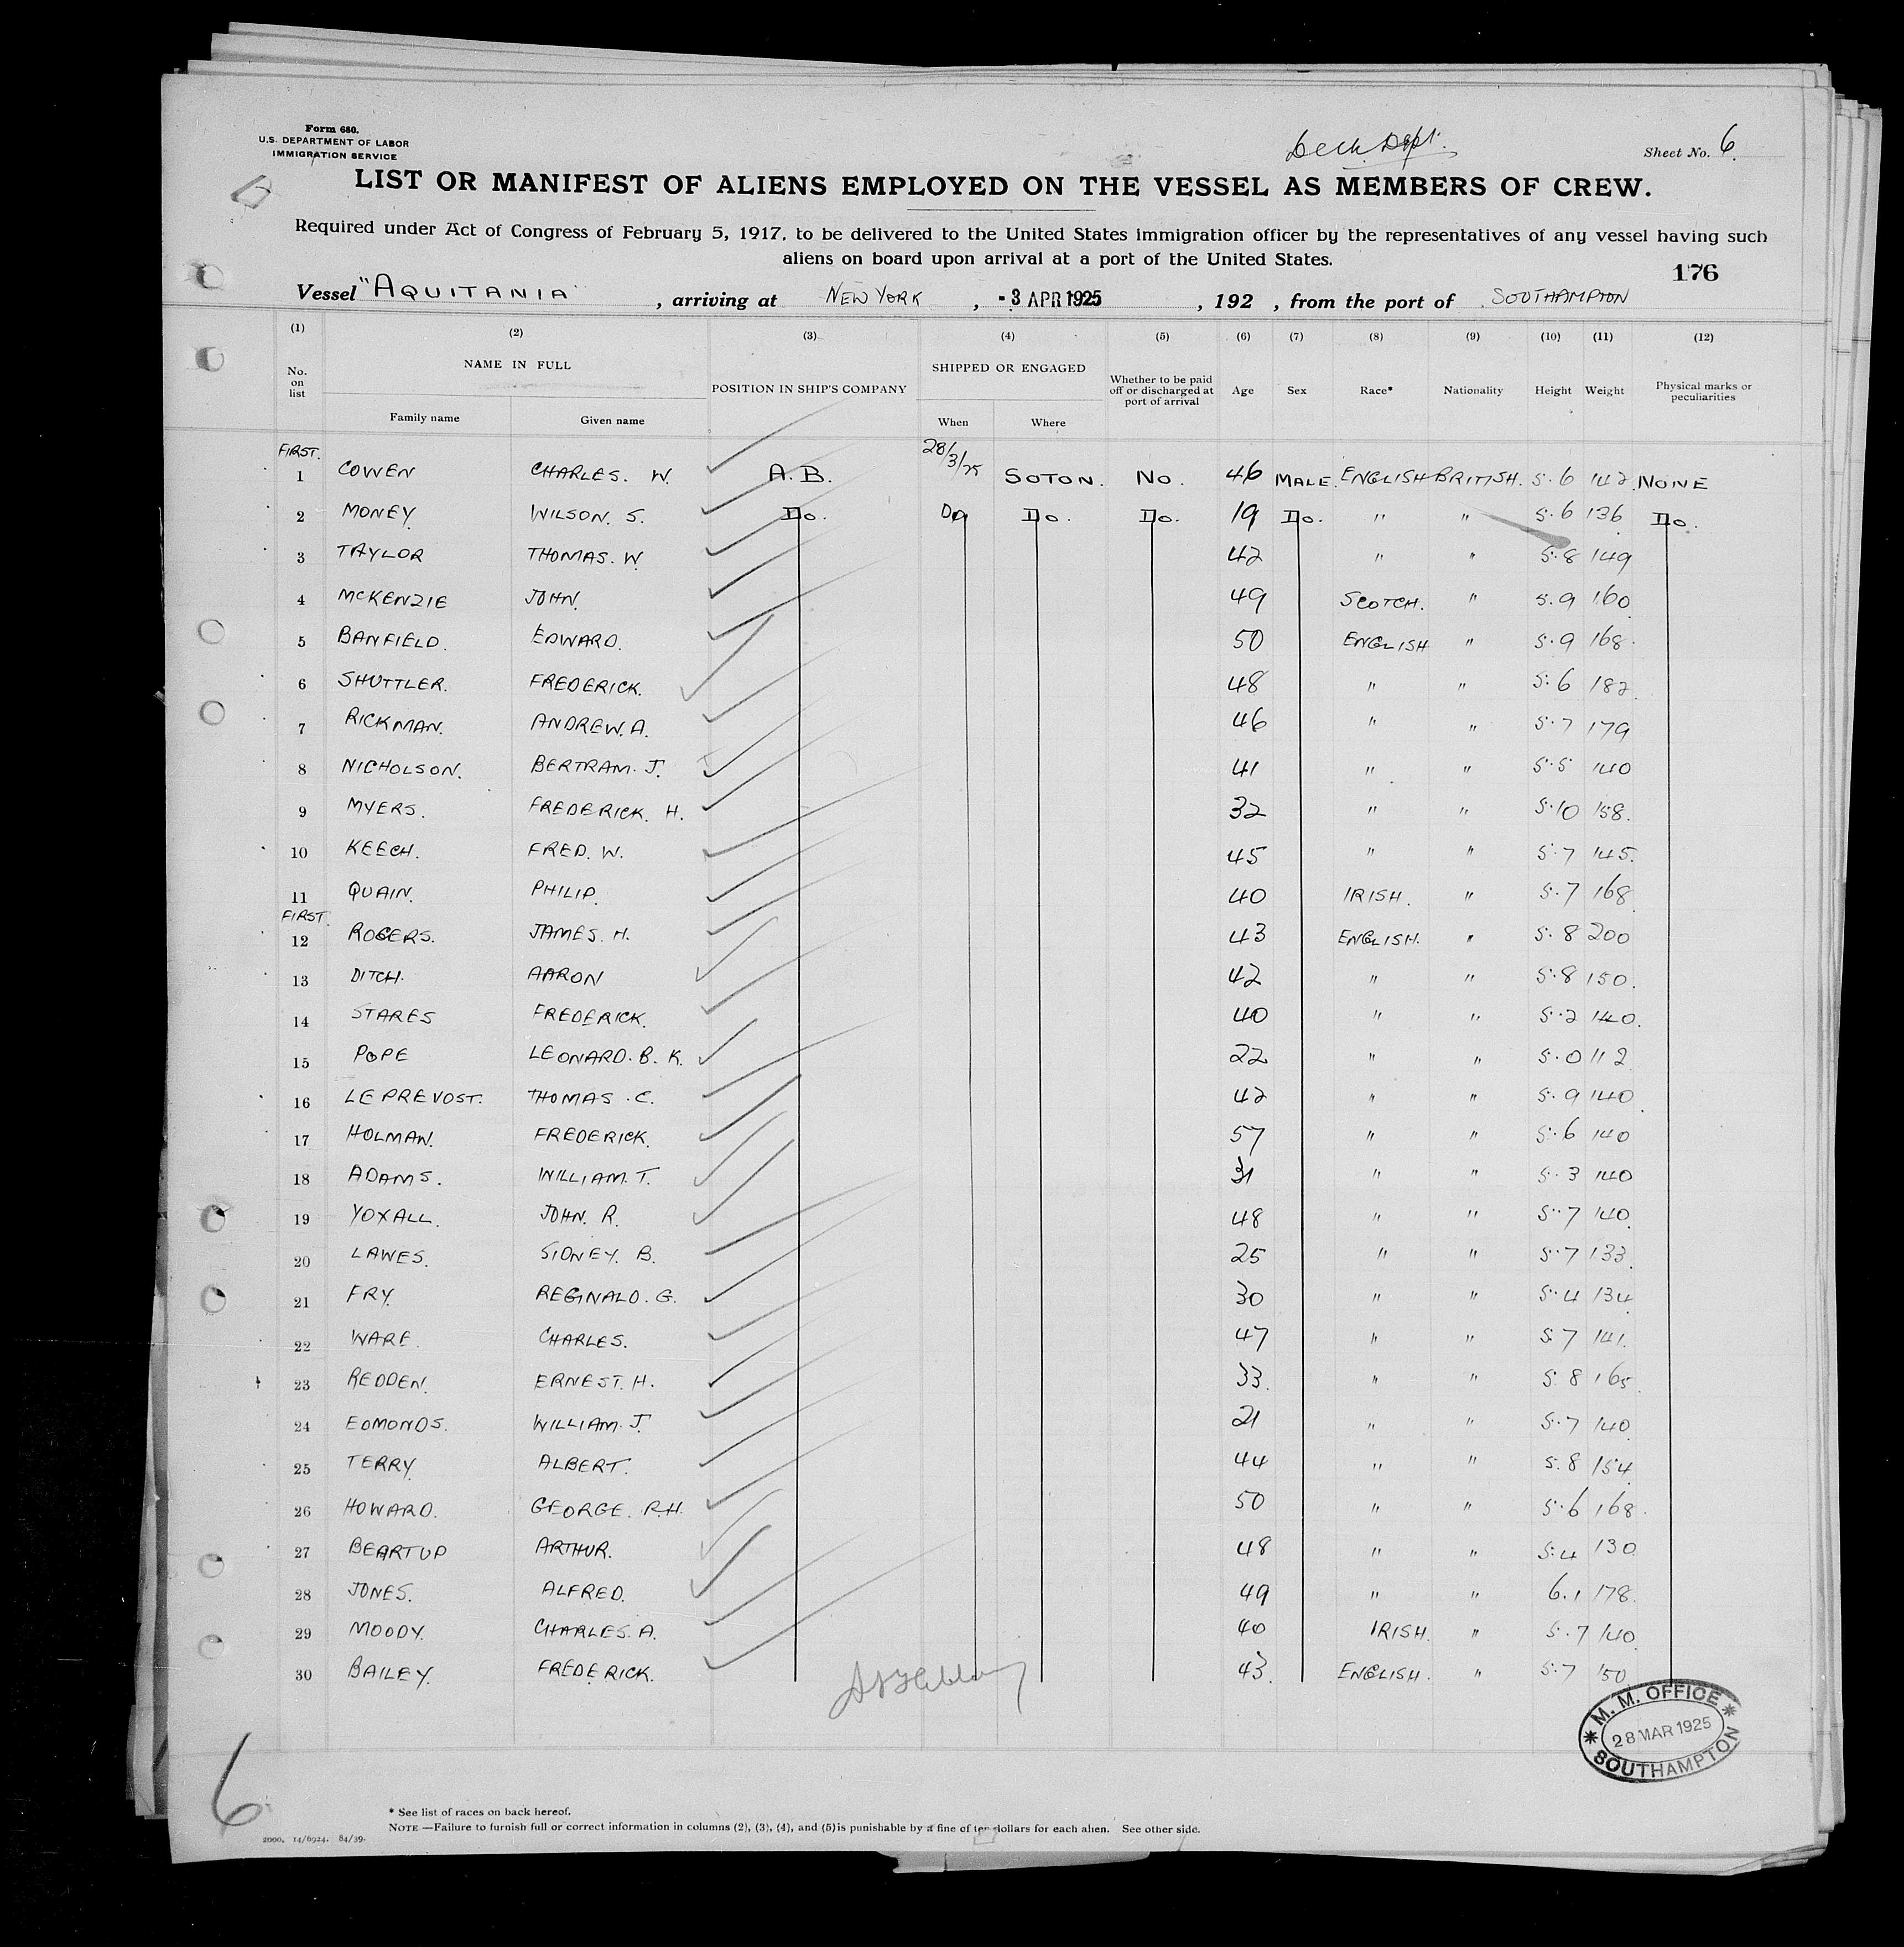 Form 680.
U.S. DEPARTMENT OF LABOR
IMMIGRATION SERVICE
Deck Dept.
Sheet No. 6.
LIST OR MANIFEST OF ALIENS EMPLOYED ON THE VESSEL AS MEMBERS OF CREW.
Required under Act of Congress of February 5, 1917, to be delivered to the United States immigration officer by the representatives of any vessel having such
aliens on board upon arrival at a port of the United States.
176
Vessel "AQUITANIA", arriving at NEW YORK, -3 APR 1925, 192 , from the port of SOUTHAMPTON
(1) (2) (3) (4) (5) (6) (7) (8) (9) (10) (11) (12)
No. on list NAME IN FULL POSITION IN SHIP'S COMPANY SHIPPED OR ENGAGED Whether to be paid off or discharged at port of arrival Age Sex Race* Nationality Height Weight Physical marks or peculiarities
Family name Given name When Where
FIRST.
1 COWEN CHARLES. W. A.B. 28/3/25 SOTON. No. 46 MALE. ENGLISH BRITISH. 5.6 142 NONE
2 MONEY. WILSON. S. Do. Do Do. Do. 19 Do. " " 5.6 136 Do.
3 TAYLOR THOMAS. W. 42 " " 5.8 149
4 McKENZIE JOHN. 49 SCOTCH. " 5.9 160
5 BANFIELD. EDWARD. 50 ENGLISH " 5.9 168.
6 SHUTTLER. FREDERICK. 48 " " 5.6 182.
7 RICKMAN. ANDREW. A. 46 " " 5.7 179
8 NICHOLSON. BERTRAM. J. 41 " " 5.5 140
9 MYERS. FREDERICK. H. 32 " " 5.10 158.
10 KEECH. FRED. W. 45 " " 5.7 145.
11 QUAIN. PHILIP. 40 IRISH. " 5.7 168
FIRST.
12 ROGERS. JAMES. H. 43 ENGLISH. " 5.8 200
13 DITCH. AARON 42 " " 5.8 150.
14 STARES FREDERICK. 40 " " 5.2 140.
15 POPE LEONARD. B. K. 22 " " 5.0 112
16 LE PREVOST. THOMAS. C. 42 " " 5.9 140.
17 HOLMAN. FREDERICK. 57 " " 5.6 140
18 ADAMS. WILLIAM. T. 31 " " 5.3 140
19 YOXALL. JOHN. R. 48 " " 5.7 140.
20 LAWES. SIDNEY. B. 25 " " 5.7 133.
21 FRY. REGINALD. G. 30 " " 5.4 134
22 WARE. CHARLES. 47 " " 5.7 141.
23 REDDEN. ERNEST. H. 33. " " 5.8 165
24 EDMONDS. WILLIAM. J. 21 " " 5.7 140.
25 TERRY. ALBERT. 44 " " 5.8 154
26 HOWARD. GEORGE. R.H. 50 " " 5.6 168.
27 BEARTUP ARTHUR. 48 " " 5.4 130
28 JONES. ALFRED. 49 " " 6.1 178.
29 MOODY. CHARLES. A. 40 IRISH. " 5.7 140
30 BAILEY. FREDERICK. 43. ENGLISH. " 5.7 150
M. M. OFFICE
28 MAR 1925
SOUTHAMPTON
6
* See list of races on back hereof.
NOTE —Failure to furnish full or correct information in columns (2), (3), (4), and (5) is punishable by a fine of ten dollars for each alien. See other side.
2000. 14/6924. 84/39.